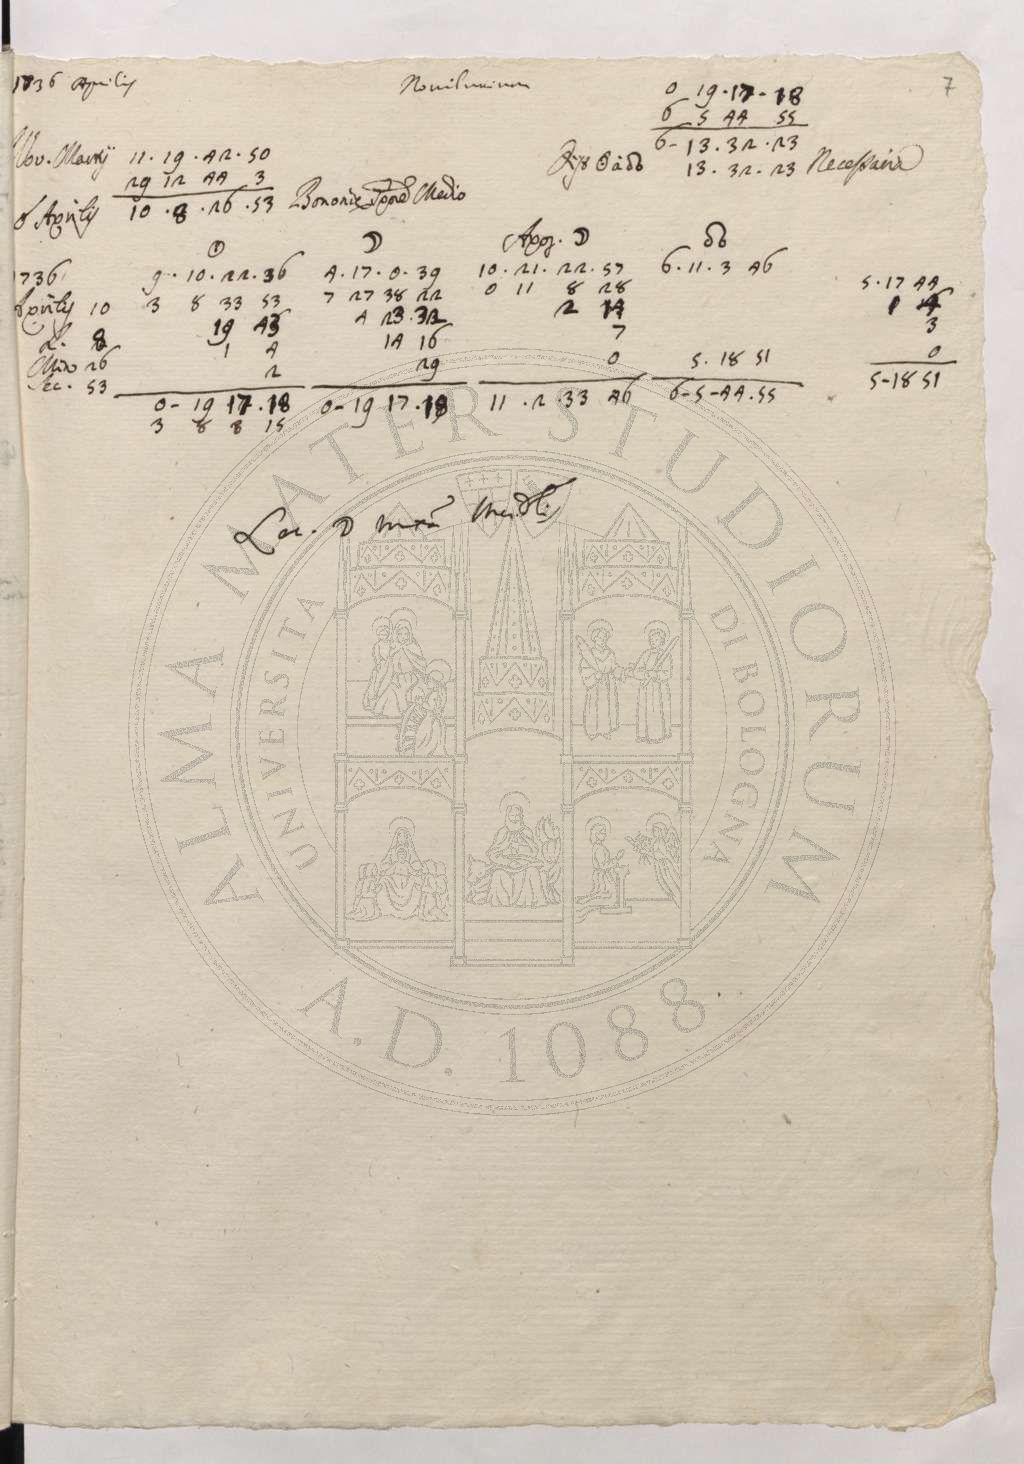 1736 Aprilis
Novilunium
0 19 · 17 · 18
7
6 5 44 55
6 - 13 · 32 · 23
Nov. Martij 11 · 19 · 42 · 50
☉ à ☊ 13 · 32 · 23 Necessaria
29 12 44 3
Aprilis 10 · 8 · 26 · 53 Bononiæ Medio
☉ ☽ Apog. ☽ ☊
1736 9 · 10 · 22 · 36 4 · 17 · 0 · 39 10 · 21 · 22 · 57 6 · 11 · 3 46 5 · 17 44
Aprilis 10 3 8 33 53 7 27 38 22 0 11 8 28 1 14
H. 8 19 43 4 23 · 32 2 14 3
Min. 26 1 4 14 16 7 0
Sec. 53 2 29 0 5 · 18 51 5 - 18 51
0 - 19 17 · 18 0 - 19 17 · 18 11 · 2 · 33 46 6 - 5 - 44 · 55
3 8 8 15
Loc. ☽
ALMA MATER STUDIORUM
UNIVERSITA DI BOLOGNA
A.D. 1088